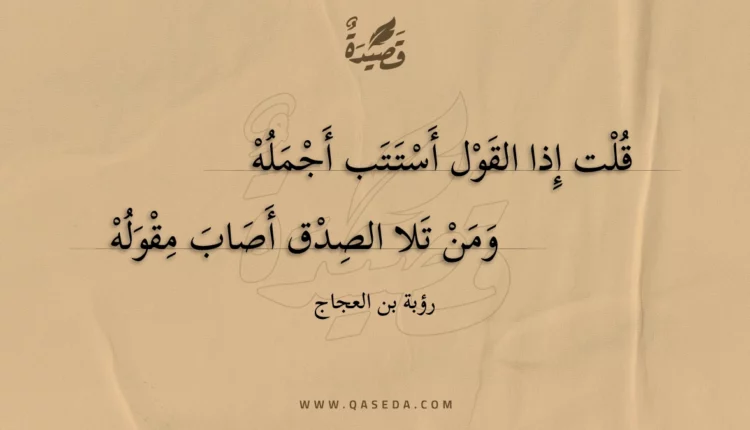 قَصِيدَةٌ
قُلْت إِذا القَوْل أَسْتَتَب أَجْمَلُهْ
وَمَنْ تَلا الصِدْق أَصَابَ مِقْوَلُهْ
رؤبة بن العجاج
WWW.QASEDA.COM